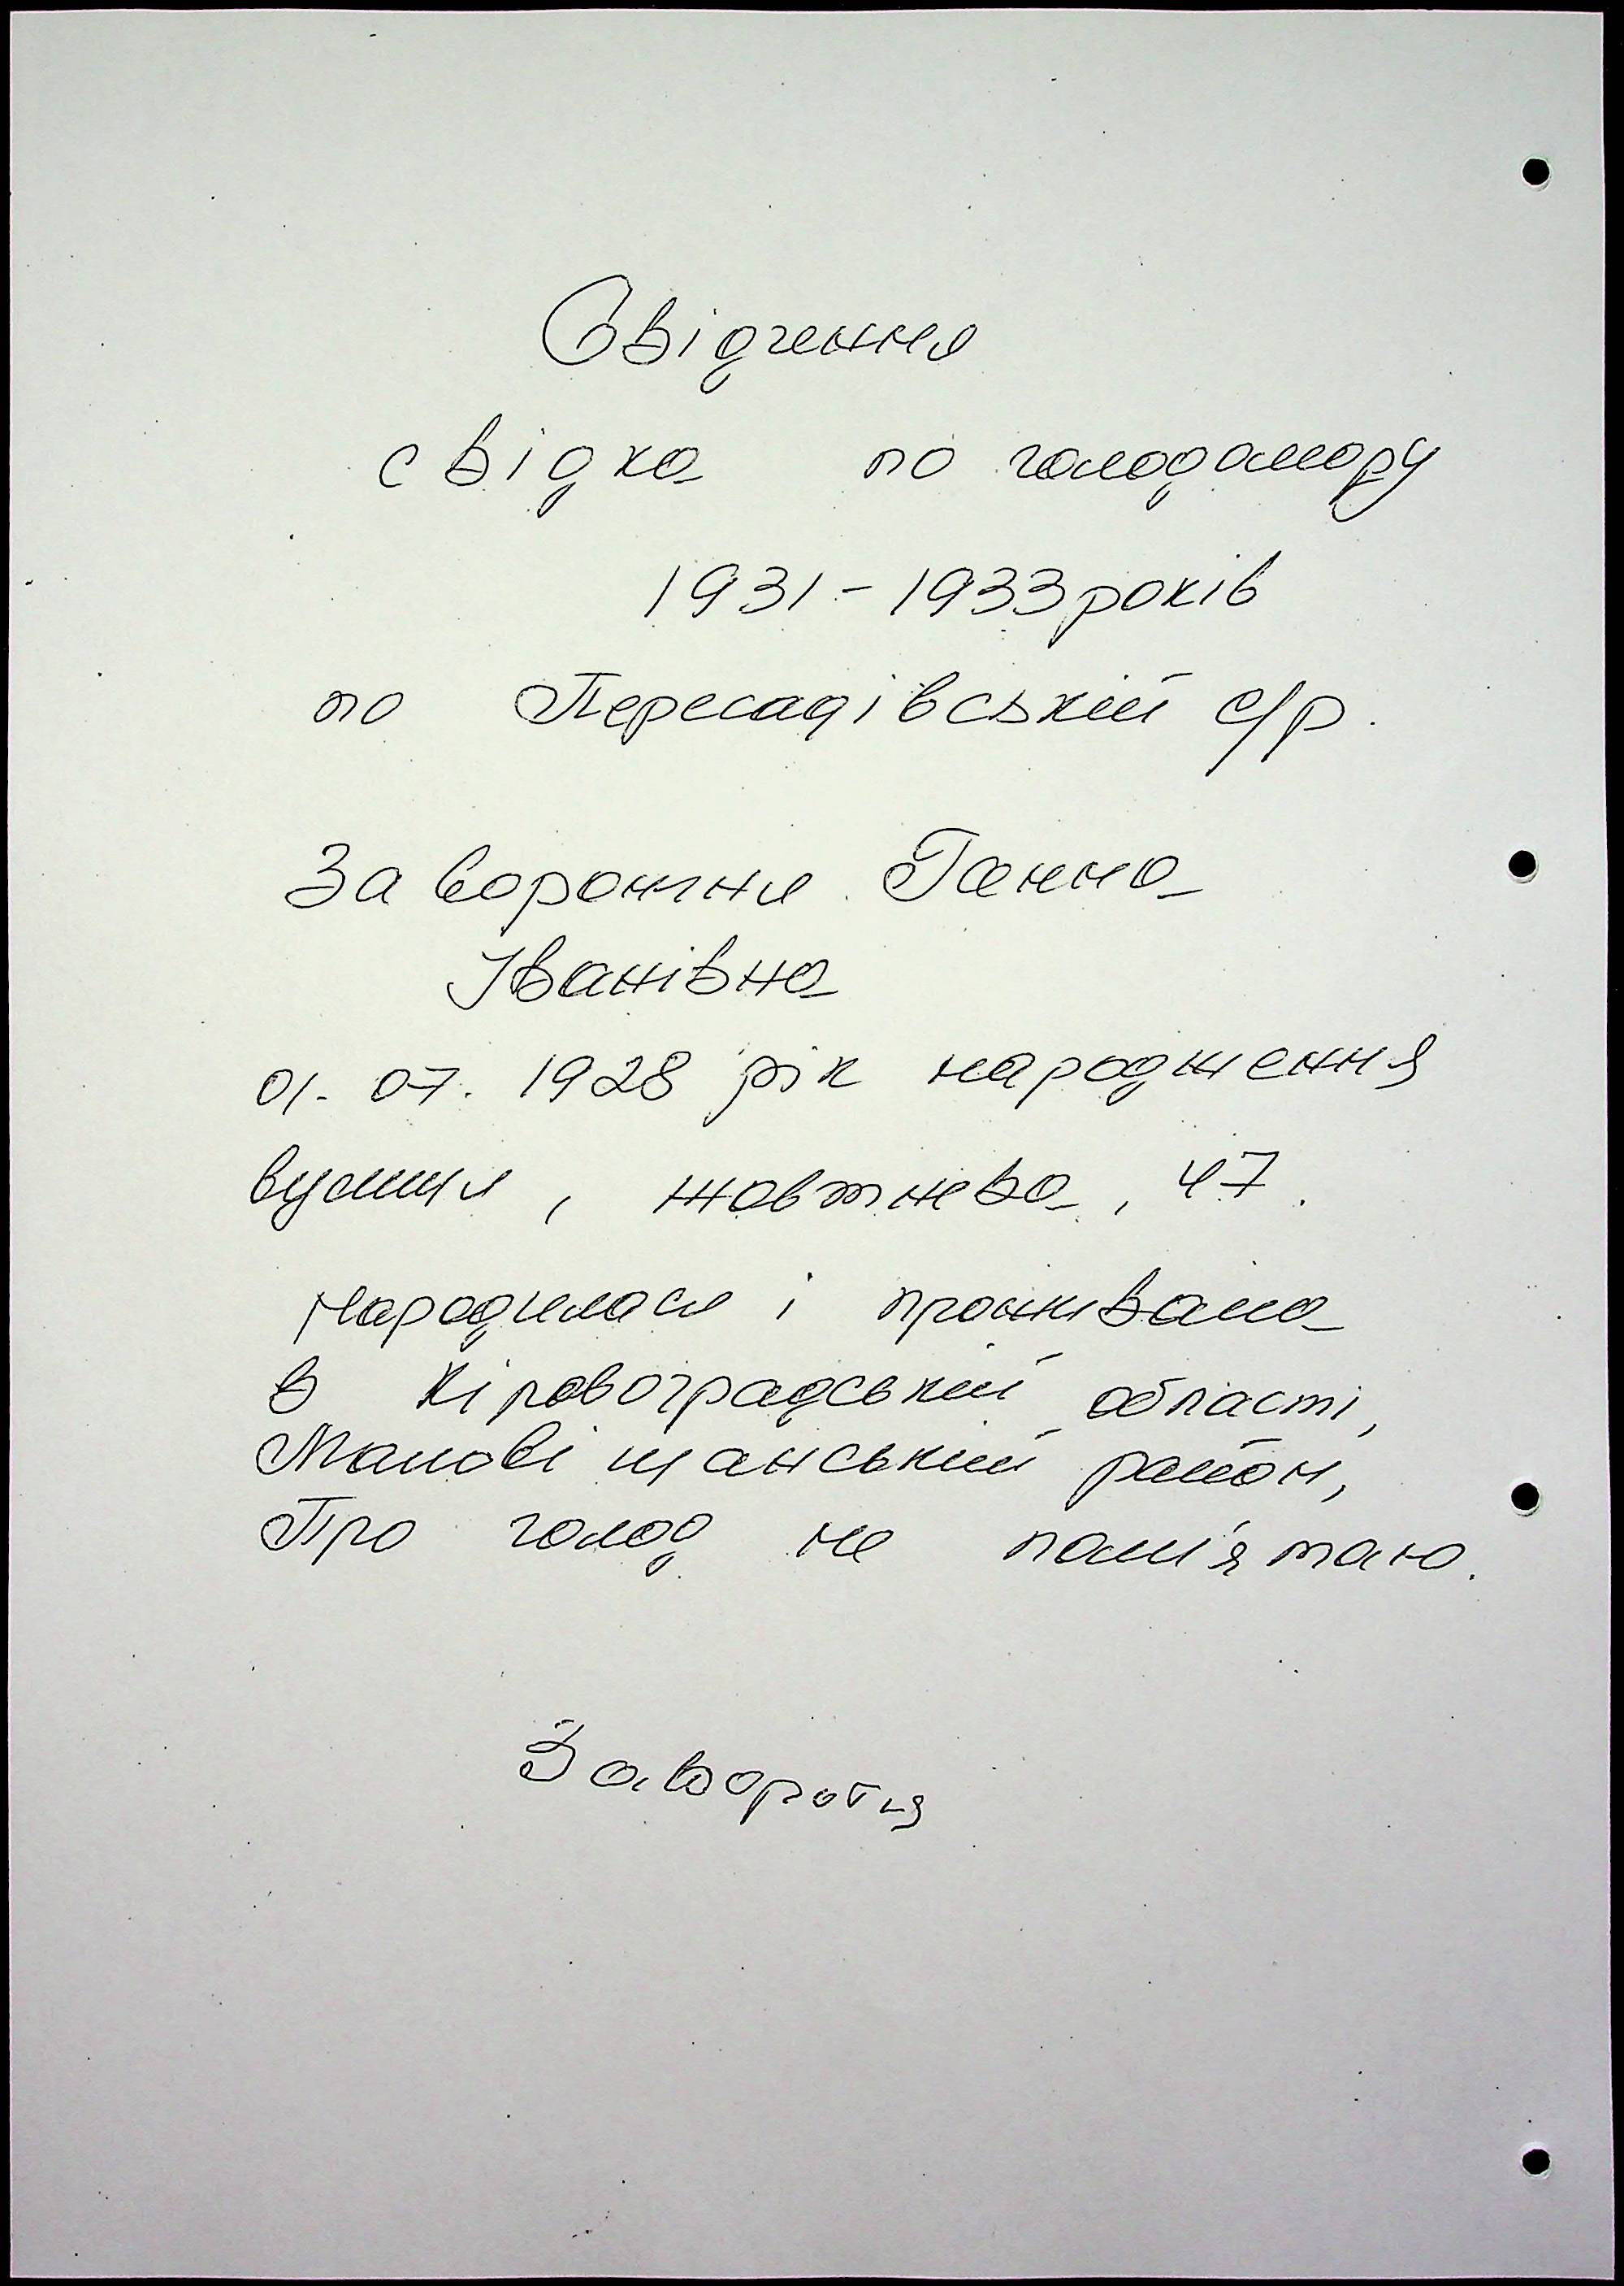 Свідчення
свідка по голодомору
1931-1933 років
по Пересадівській с/р.
Заворотня Ганна
Іванівна
01. 07. 1928 рік народження
вулиця, жовтнева, 47.
народилася і проживала
в Кіровоградській області,
Маловіщанський район,
Про голод не пам'ятаю.
Заворотня